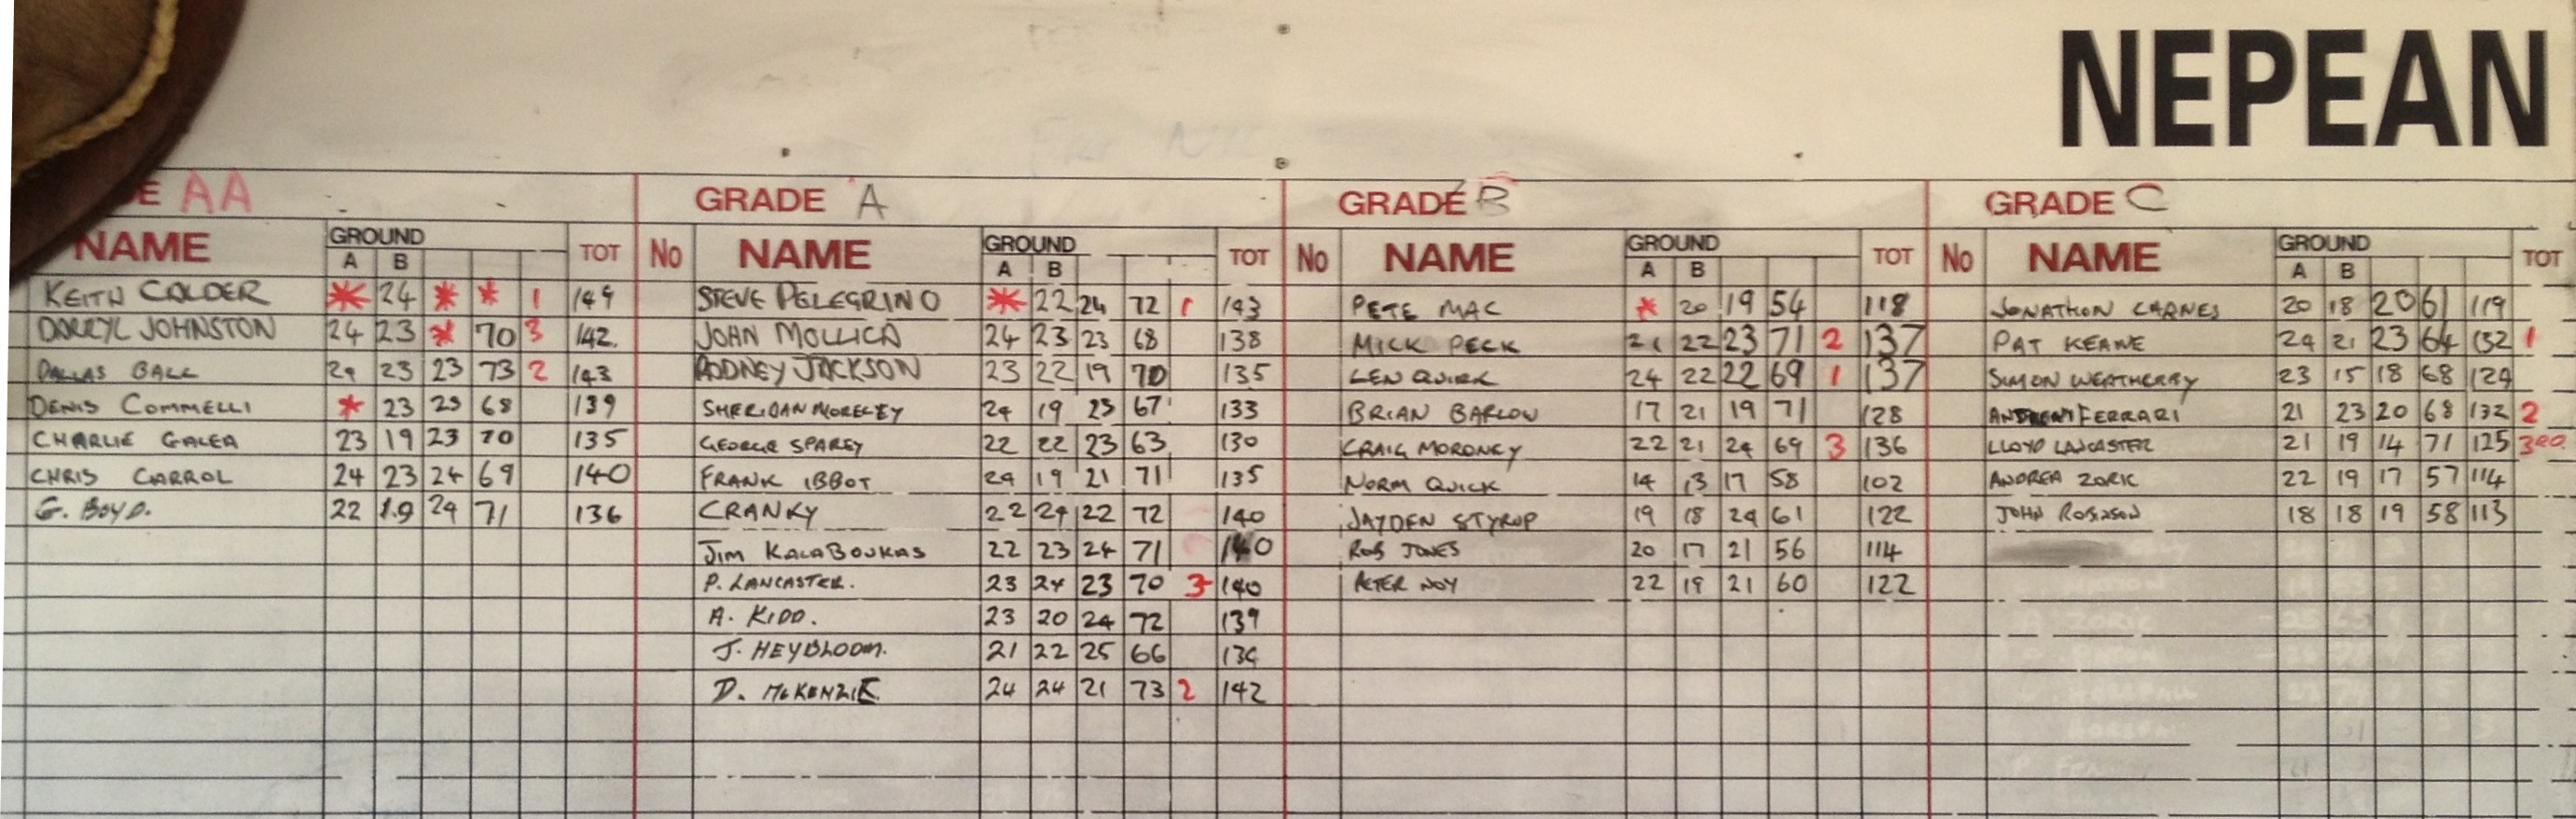 NEPEAN
E AA GRADE A GRADE B GRADE C
NAME GROUND TOT No NAME GROUND TOT No NAME GROUND TOT No NAME GROUND TOT
A B A B A B A B
KEITH COLDER * 24 * * 1 149 STEVE PELEGRINO * 22 24 72 1 143 PETE MAC * 20 19 54 118 JONATHON CARNES 20 18 20 61 119
DARRYL JOHNSTON 24 23 * 70 3 142. JOHN MOLLICA 24 23 23 68 138 MICK PECK 21 22 23 71 2 137 PAT KEANE 24 21 23 64 132 1
DALLAS BALL 24 23 23 73 2 143 RODNEY JACKSON 23 22 19 70 135 LEN QUIRK 24 22 22 69 1 137 SIMON WEATHERBY 23 15 18 68 124
DENIS COMMELLI * 23 23 68 139 SHERIDAN MORELEY 24 19 23 67 133 BRIAN BARLOW 17 21 19 71 128 ANDREW FERRARI 21 23 20 68 132 2
CHARLIE GALEA 23 19 23 70 135 GEORGE SPAREY 22 22 23 63 130 CRAIG MORONEY 22 21 24 69 3 136 LLOYD LANCASTER 21 19 14 71 125 3RD
CHRIS CARROL 24 23 24 69 140 FRANK IBBOT 24 19 21 71 135 NORM QUICK 14 13 17 58 102 ANDREA ZORIC 22 19 17 57 114
G. BOYD. 22 19 24 71 136 CRANKY 22 24 22 72 140 JAYDEN STYRUP 19 18 24 61 122 JOHN ROBINSON 18 18 19 58 113
JIM KALABOUKAS 22 23 24 71 140 ROB JONES 20 17 21 56 114
P. LANCASTER. 23 24 23 70 3 140 PETER NOY 22 19 21 60 122
A. KIDD. 23 20 24 72 139
J. HEYBLOOM. 21 22 25 66 134
D. McKENZIE 24 24 21 73 2 142